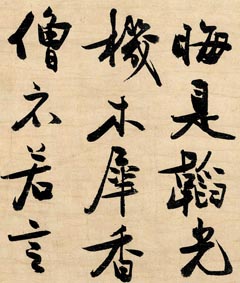 晦是韜光
機木犀香
僧衣若言